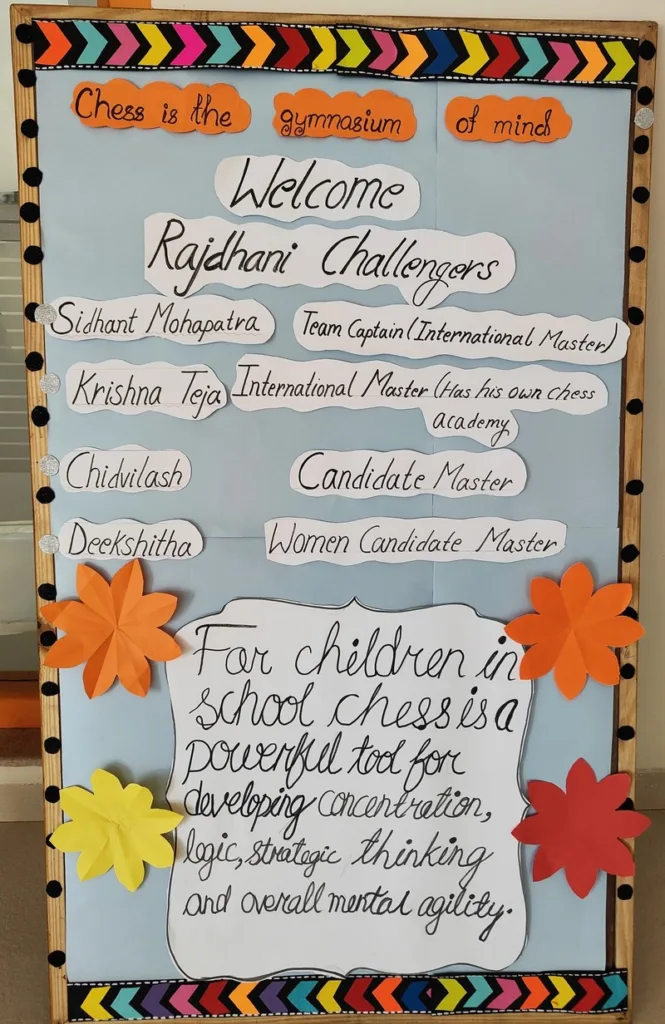 Chess is the gymnasium of mind
Welcome
Rajdhani Challengers
Sidhant Mohapatra Team Captain (International Master)
Krishna Teja International Master (Has his own chess
academy
Chidvilash Candidate Master
Deekshitha Women Candidate Master
For children in
school chess is a
powerful tool for
developing concentration,
logic, strategic thinking
and overall mental agility.